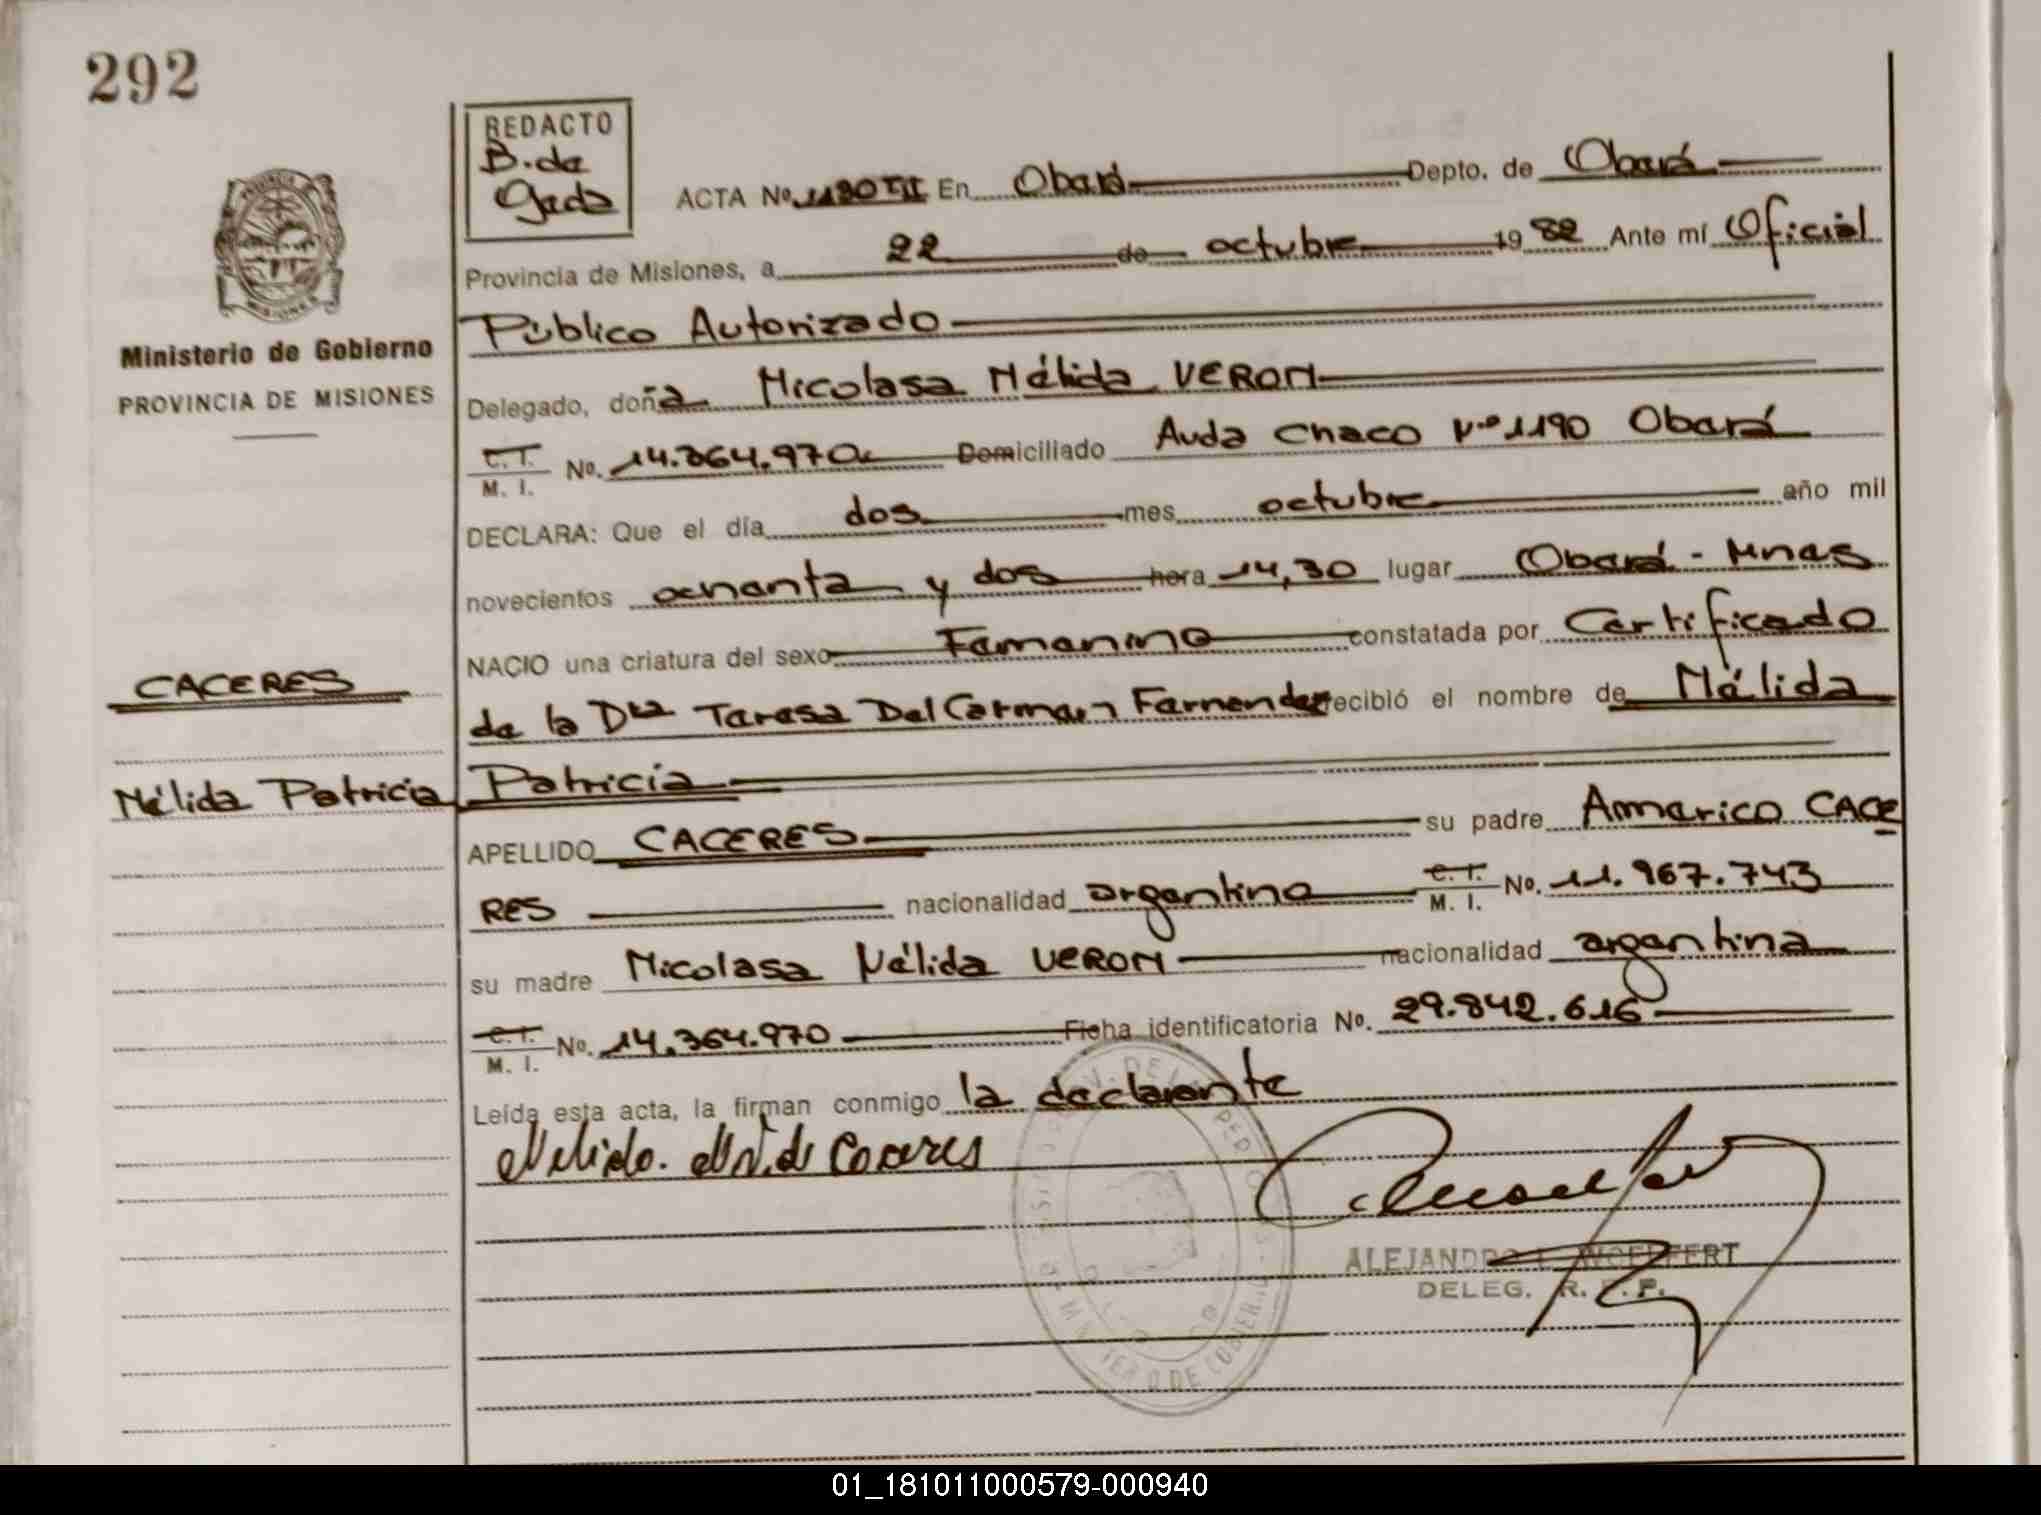 292
REDACTO
B. de
Ministerio de Gobierno
PROVINCIA DE MISIONES
ACTA Nº 1190 TII En Oberá Depto. de Oberá
Provincia de Misiones, a 22 de octubre 19 82 Ante mí Oficial
Público Autorizado
Delegado, doña Nicolasa Nélida VERON
C. I. M. I. No. 14.364.970 Domiciliado Avda Chaco Nº 1190 Oberá
DECLARA: Que el día dos mes octubre año mil
novecientos ochenta y dos hora 14,30 lugar Oberá - Mnes
NACIO una criatura del sexo Femenino constatada por Certificado
de la Dra Teresa Del Carmen Fernendez recibió el nombre de Nélida
Patricia
CACERES
Nélida Patricia
APELLIDO CACERES su padre Americo CACE
RES nacionalidad argentino C. I. M. I. No. 11.967.743
su madre Nicolasa Nélida VERON nacionalidad argentina
C. I. M. I. No. 14.364.970 Ficha identificatoria No. 29.842.616
Leída esta acta, la firman conmigo la declarante
Nelida. de Caceres
ALEJANDRO L. WOELFERT
DELEG. R. P.
MINISTERIO DE GOBIERNO
01_181011000579-000940